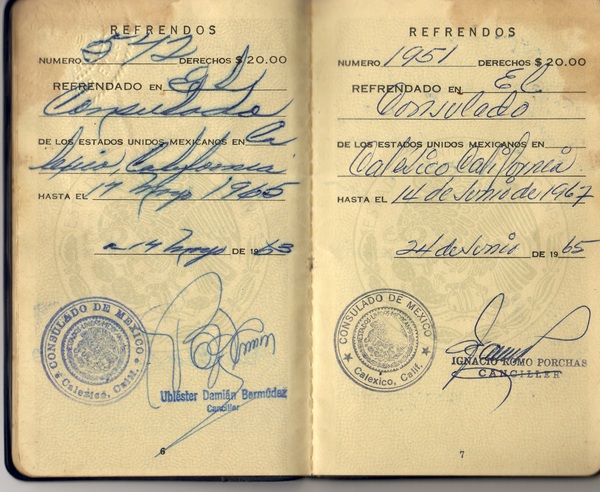 REFRENDOS
NUMERO 542 DERECHOS $ 20.00
REFRENDADO EN El
Consulado
DE LOS ESTADOS UNIDOS MEXICANOS EN Ca
lexico, California
HASTA EL 17 Mayo 1965
a 14 mayo DE 1963
CONSULADO DE MEXICO
Calexico, Calif.
Ubléster Damián Bermúdez
Canciller
6
REFRENDOS
NUMERO 1951 DERECHOS $ 20.00
REFRENDADO EN El
Consulado
DE LOS ESTADOS UNIDOS MEXICANOS EN
Calexico California
HASTA EL 14 de Junio de 1967
24 de Junio DE 1965
CONSULADO DE MEXICO
Calexico, Calif.
IGNACIO ROMO PORCHAS
CANCILLER
7